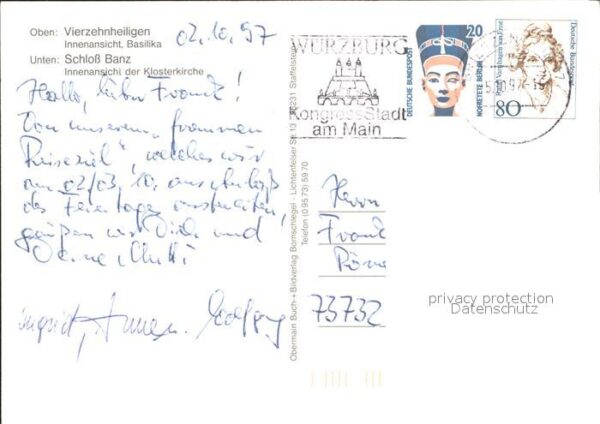 Oben: Vierzehnheiligen
Innenansicht, Basilika
Unten: Schloß Banz
Innenansicht der Klosterkirche
02.10.97
Hallo, lieber Frank!
Von unserem "frommen
Reiseziel", welches wir
am 02/03.10. anschließ
des Feiertages
grüßen wir Dich und
Deine Mutti
Ingrid,
Wolfgang
Obermain Buch- + Bildverlag Bornschlegel · Lichtenfelser Str. 13 · 96231 Staffelstein
Telefon (0 95 73) 59 70
WÜRZBURG
KongressStadt
am Main
DEUTSCHE BUNDESPOST
20
NOFRETETE BERLIN
Deutsche Bundespost
80
Herrn
Frank
73732
privacy protection
Datenschutz